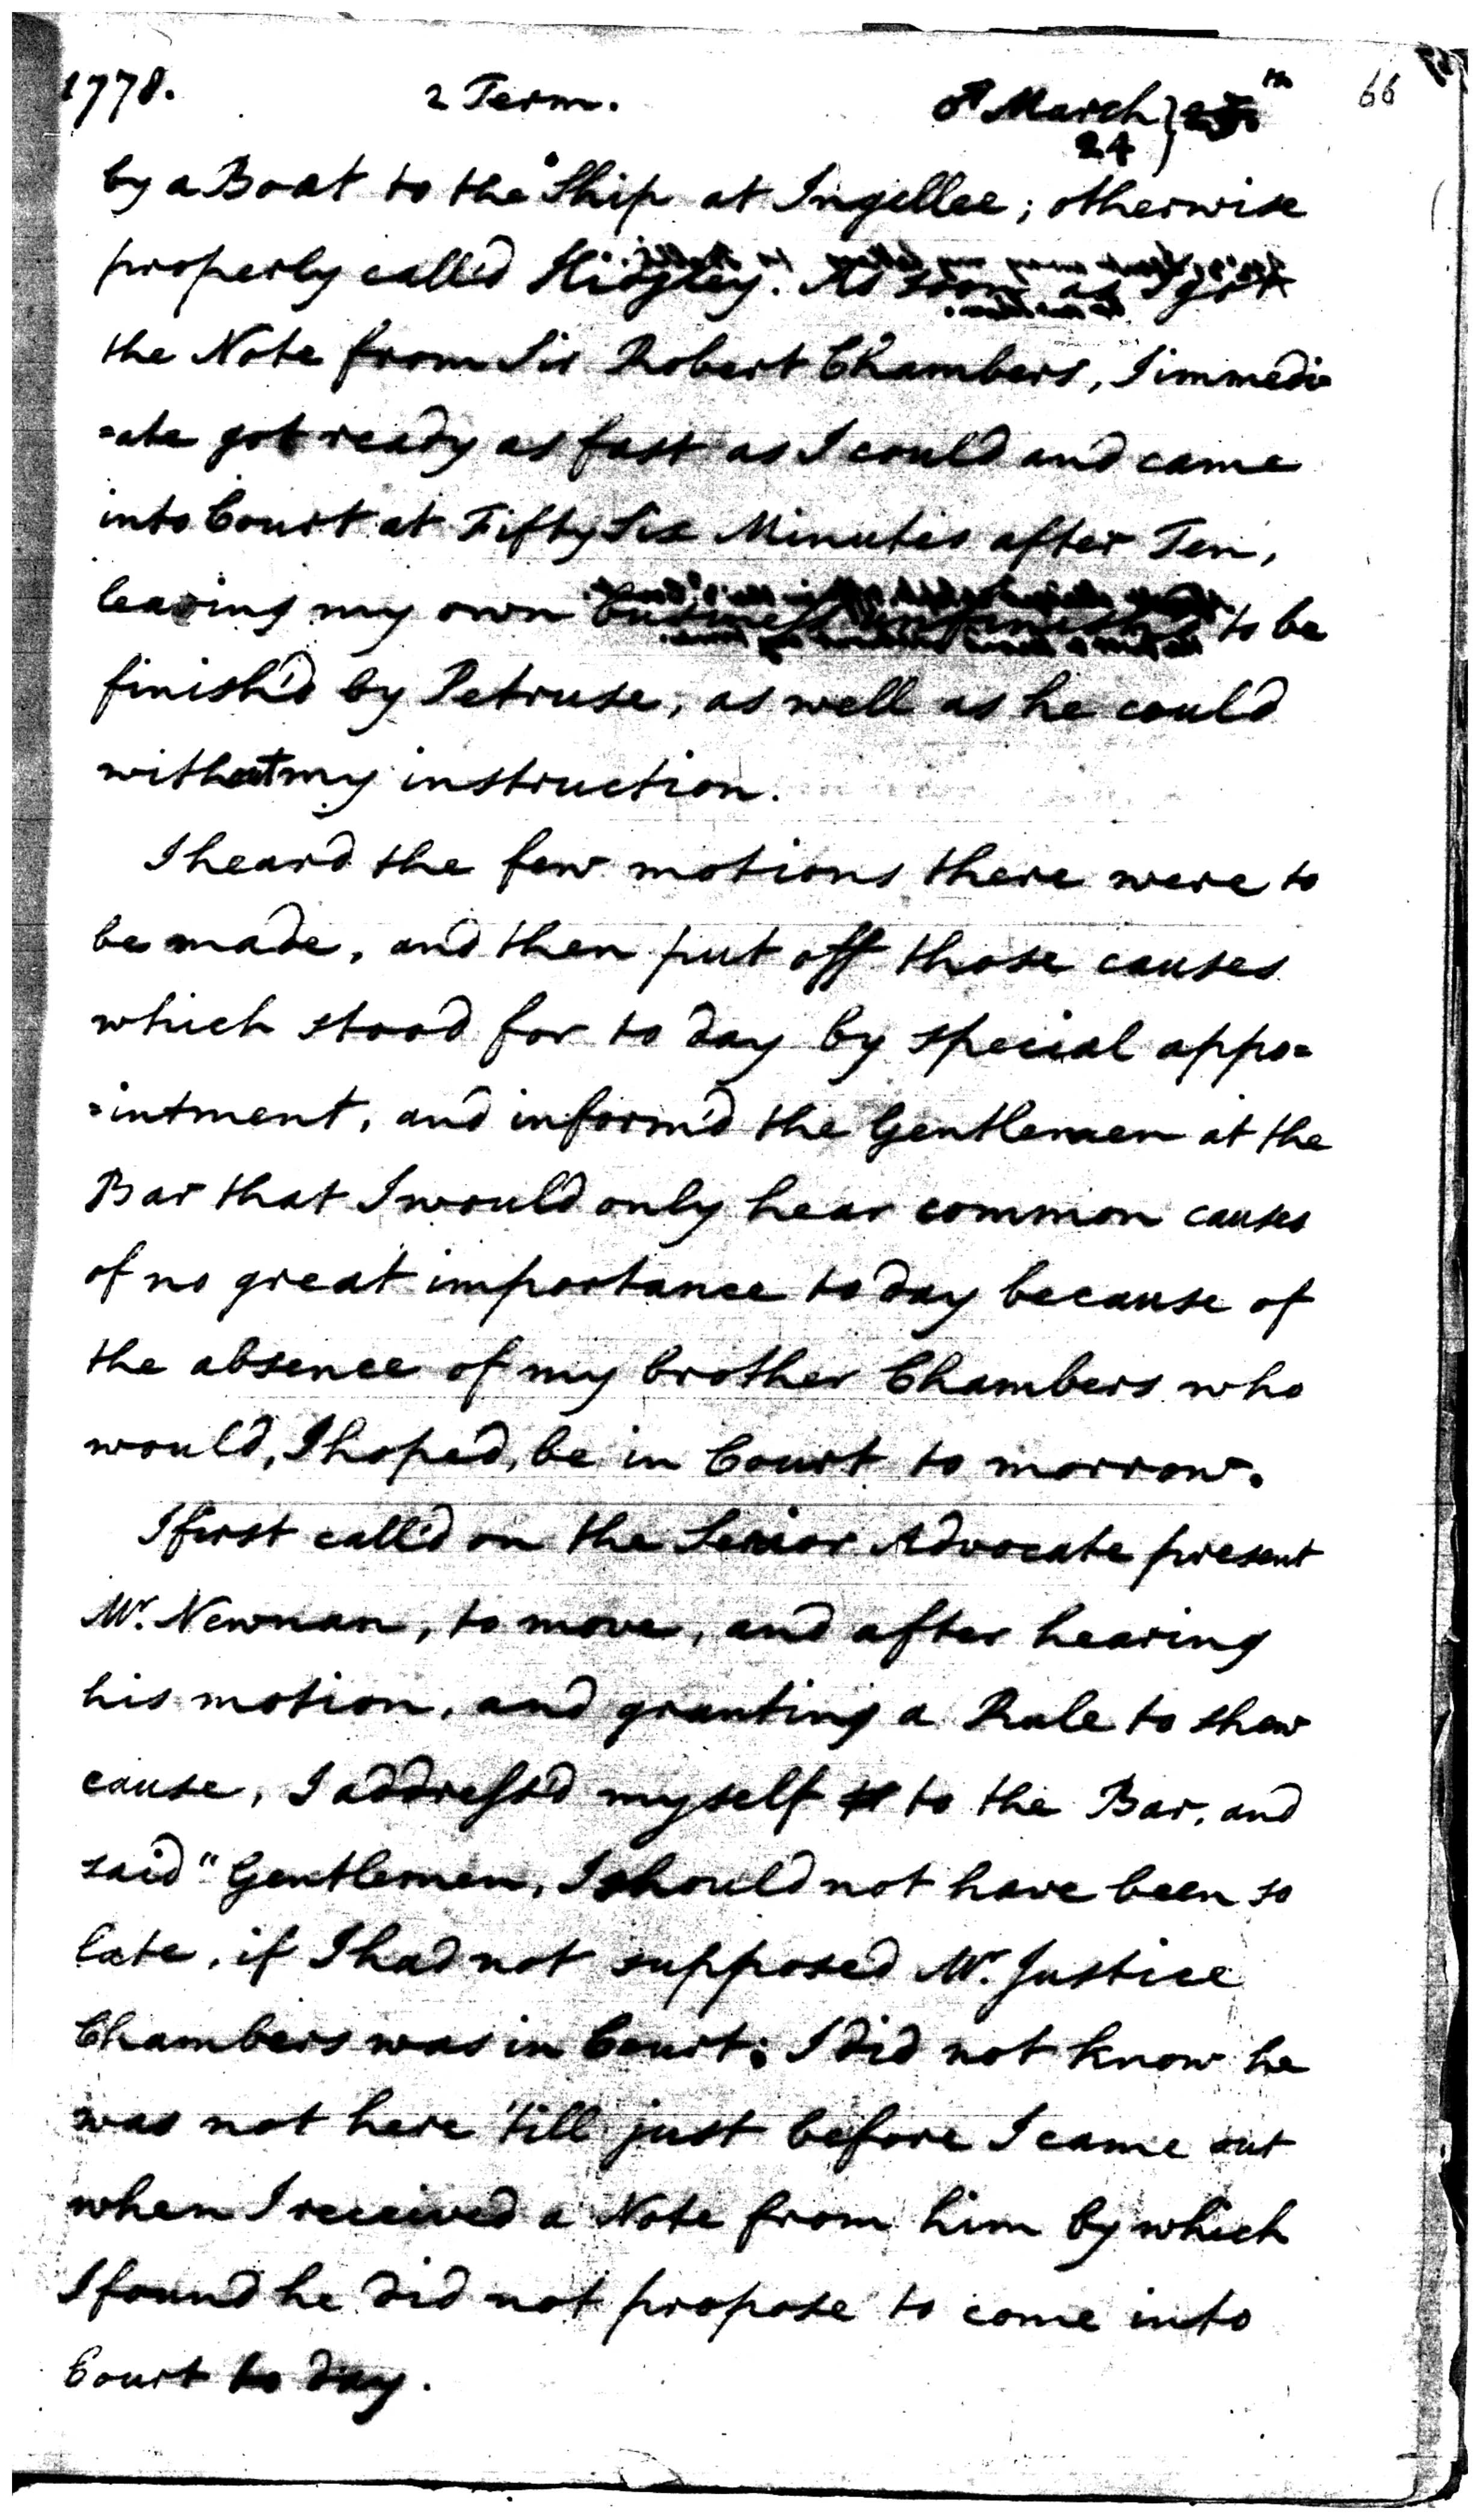 1778. 2 Term. ♂ March 24 66
by a Boat to the Ship at Ingellee; otherwise
properly call'd Hidgley. As soon as I got
the Note from Sir Robert Chambers, I immedi=
=ate got ready as fast as I could and came
into Court at Fifty Six Minutes after Ten,
leaving my own business to be
finish'd by Petruse, as well as he could
without my instruction.
I heard the few motions there were to
be made, and then put off those causes
which stood for to day by special appo=
=intment, and inform'd the Gentlemen at the
Bar that I would only hear common causes
of no great importance to day because of
the absence of my brother Chambers who
would, I hoped, be in Court to morrow.
I first call'd on the Senior Advocate present
Mr. Newman, to move, and after hearing
his motion, and granting a Rule to shew
cause, I address'd myself to the Bar, and
said "Gentlemen, I should not have been so
late, if I had not supposed Mr. Justice
Chambers was in Court; I did not know he
was not here 'till just before I came out
when I received a Note from him by which
I found he did not propose to come into
Court to day.